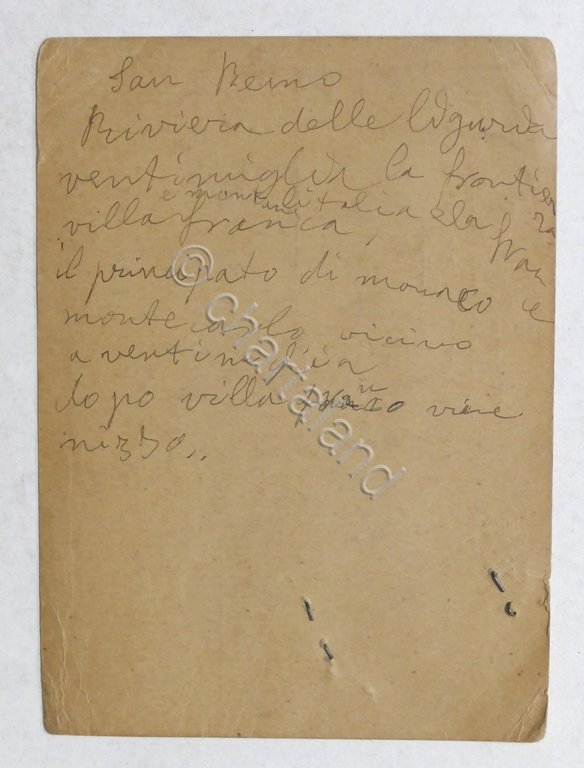 San Remo
Riviera delle liguria
ventimiglia la frontiera
e
l'italia e la
villa franca,
il principato di monaco e
monte carlo vicino
a ventimiglia
dopo villa viene
nizza..
© chartaland